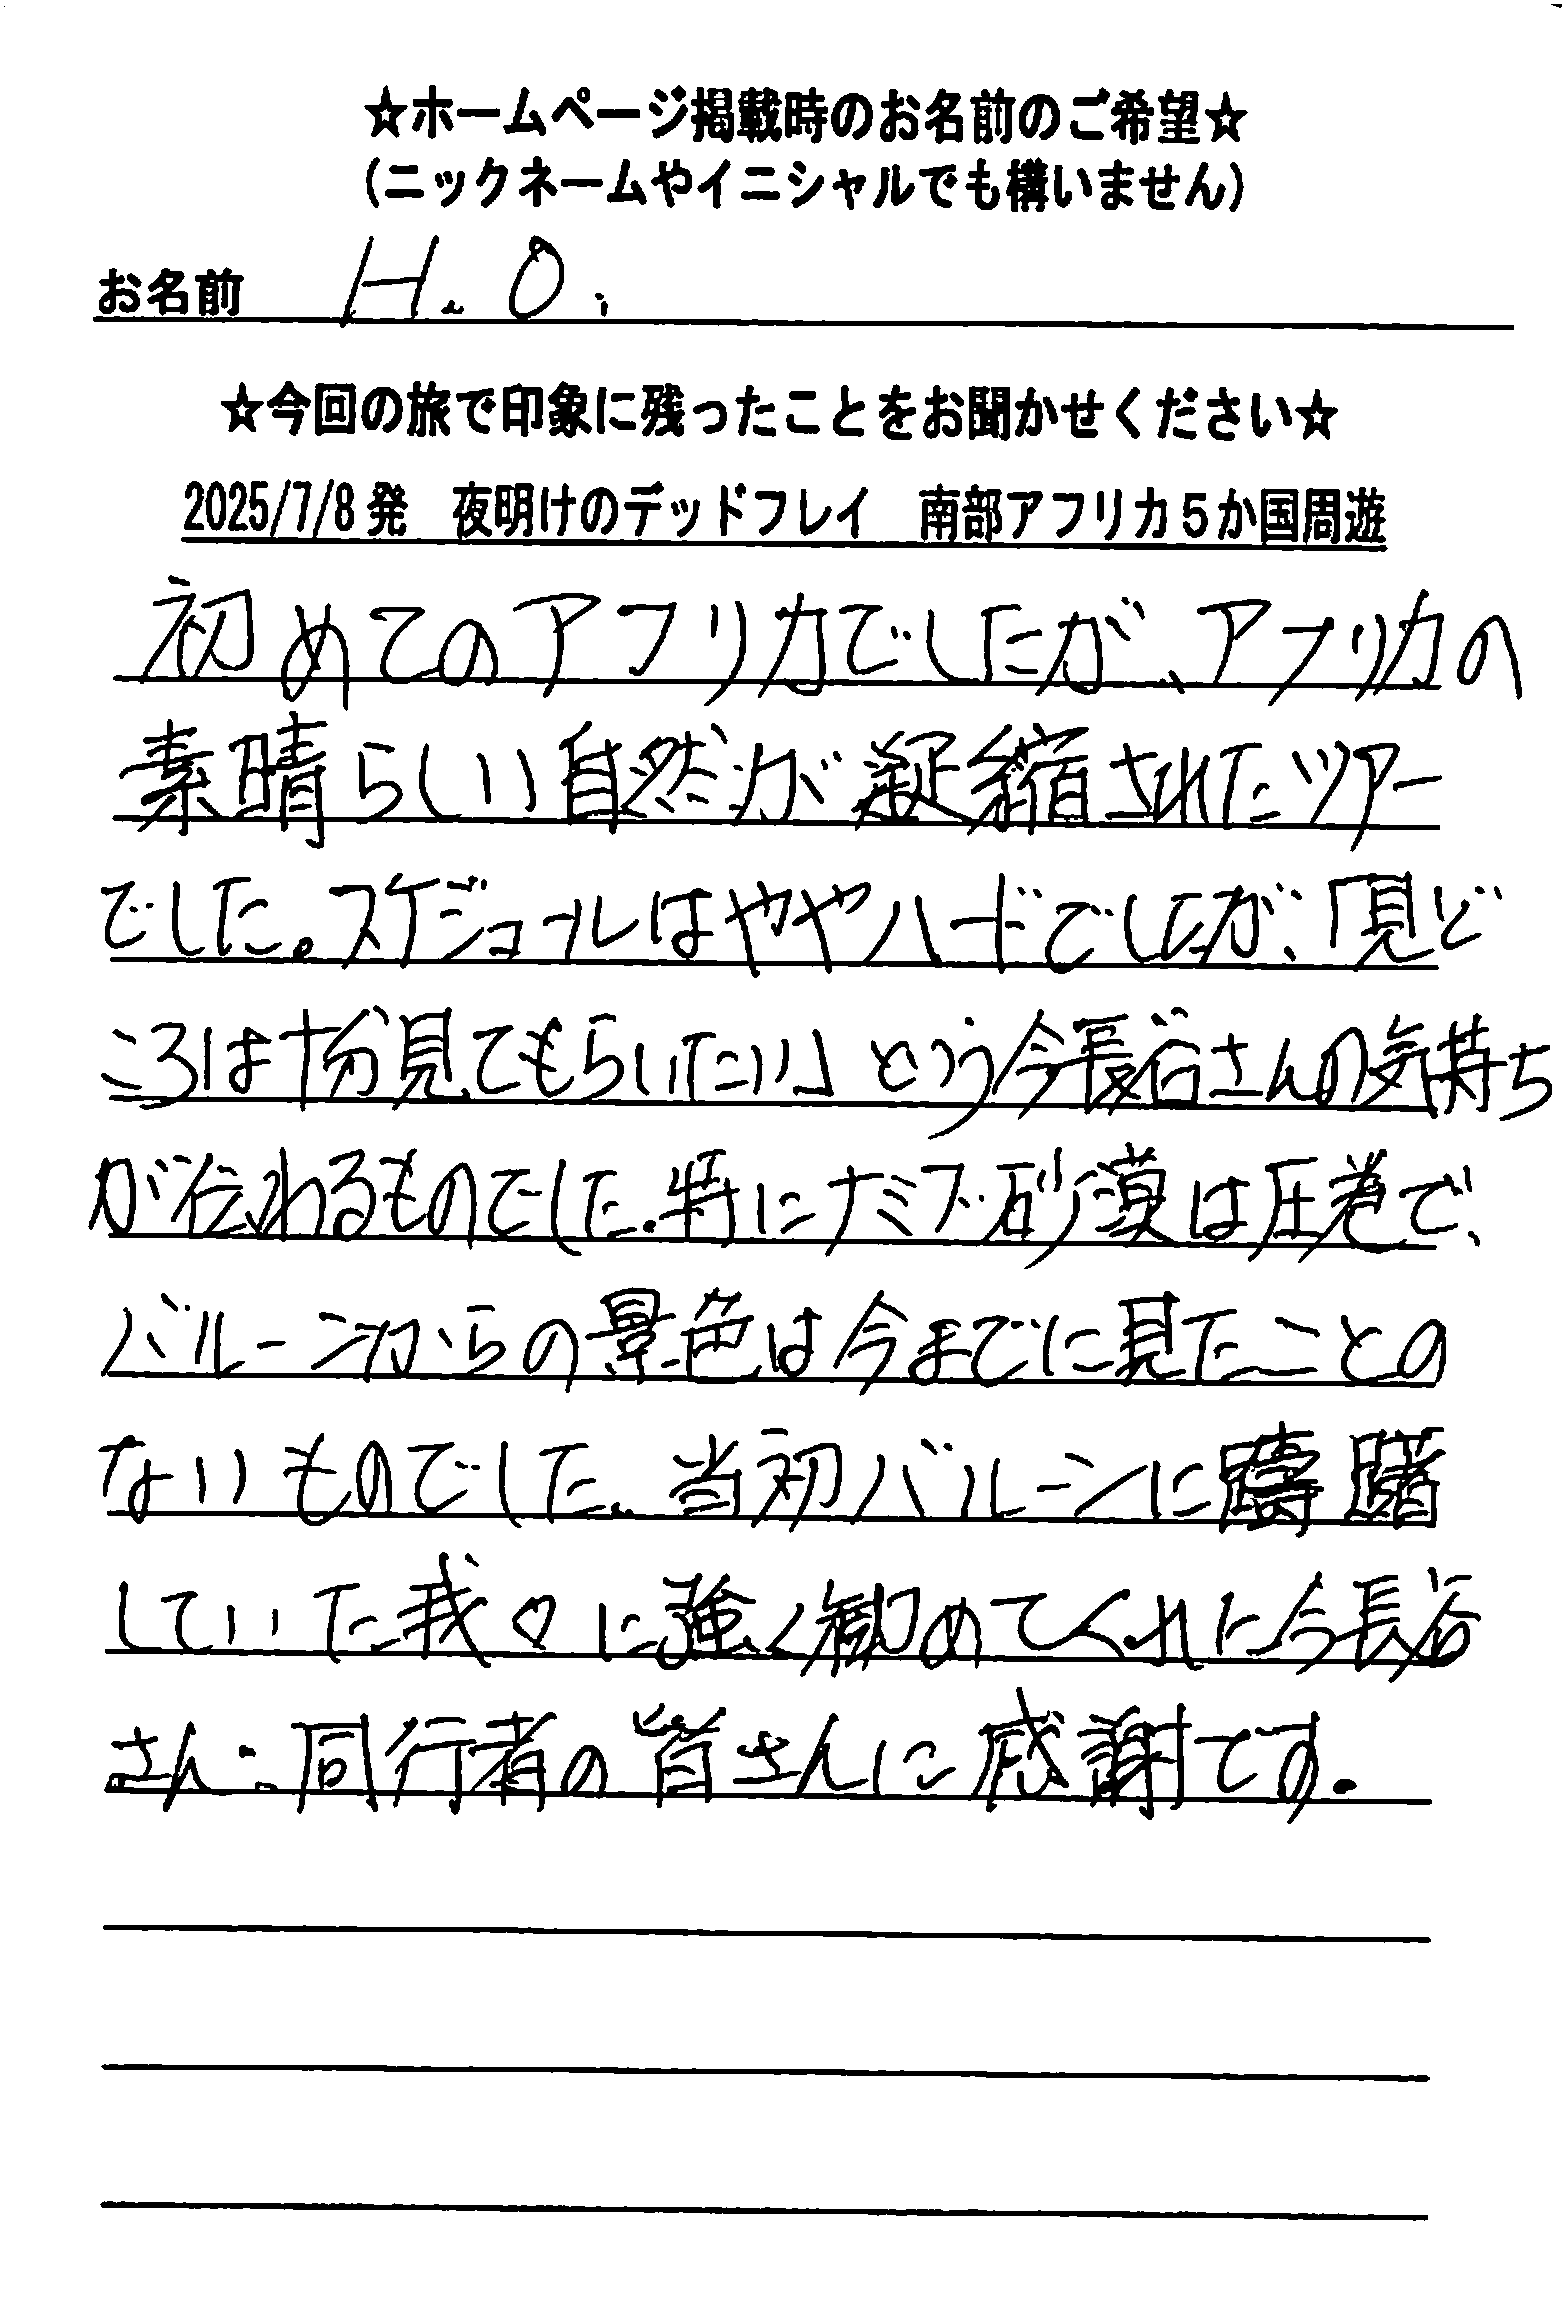 ☆ホームページ掲載時のお名前のご希望☆
（ニックネームやイニシャルでも構いません）
お名前 H.O.
☆今回の旅で印象に残ったことをお聞かせください☆
2025/7/8発 夜明けのデッドフレイ 南部アフリカ5か国周遊
初めてのアフリカでしたが、アフリカの
素晴らしい自然が凝縮されたツアー
でした。スケジュールはややハードでしたが、「見ど
ころは十分見てもらいたい」という今長谷さんの気持ち
が伝わるものでした。特にナミブ砂漠は圧巻で、
バルーンからの景色は今までに見たことの
ないものでした。当初バルーンに躊躇
していた我々に強く勧めてくれた今長谷
さん、同行者の皆さんに感謝です。